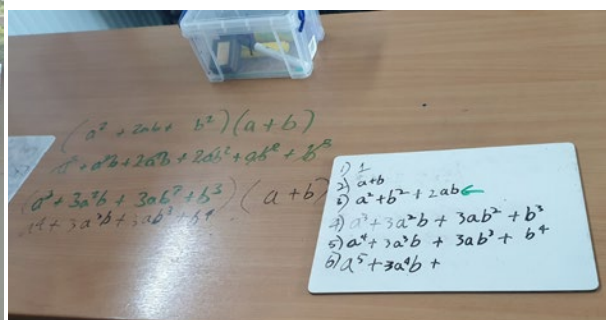 (a² + 2ab + b²)(a+b)
a³ + a²b + 2a²b + 2ab² + ab² + b³
(a³ + 3a²b + 3ab² + b³)(a+b)
a⁴ + 3a³b + 3ab³ + b⁴
1) 1
2) a+b
3) a² + b² + 2ab
4) a³ + 3a²b + 3ab² + b³
5) a⁴ + 3a³b + 3ab³ + b⁴
6) a⁵ + 3a⁴b +